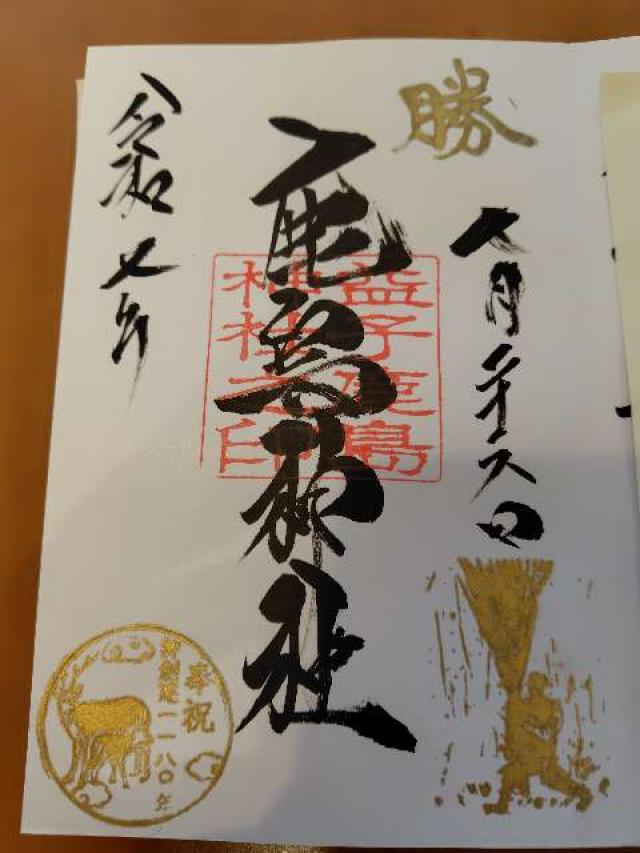 勝
月二十日
鹿島神社
益子鹿島
神社之印
令和七年
奉祝
御創建一一八〇年